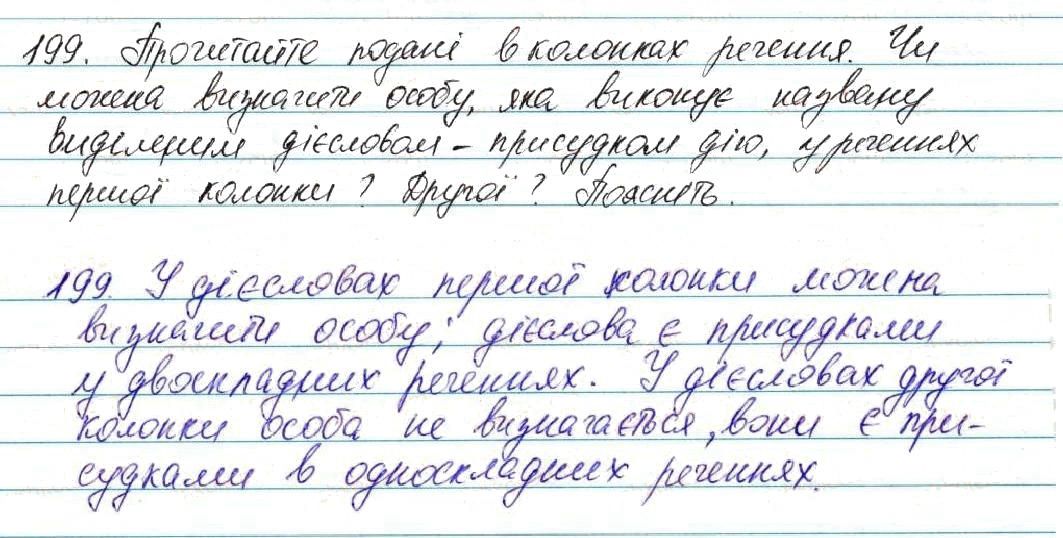 199. Прочитайте подані в колонках речення. Чи
можна визначити особу, яка виконує названу
виділеним дієсловом – присудком дію, у реченнях
першої колонки? Другої? Поясніть.
199. У дієсловах першої колонки можна
визначити особу; дієслова є присудками
у двоскладних реченнях. У дієсловах другої
колонки особа не визначається, вони є при-
судками в односкладних реченнях.